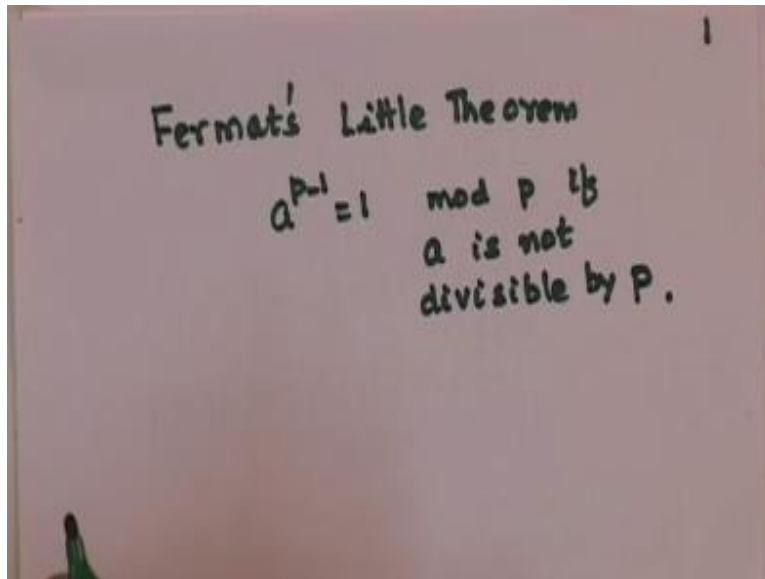 1
Fermat's Little Theorem
a^{p-1} = 1 mod p if
a is not
divisible by p.